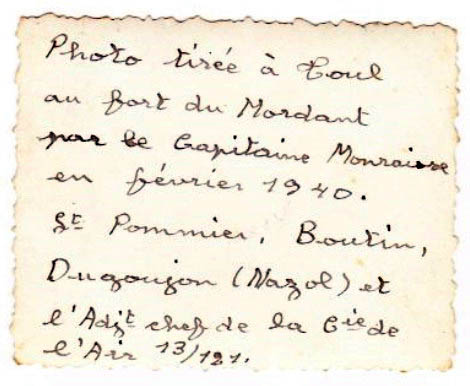 Photo tirée à Toul
au fort du Mordant
par le Capitaine Monraisse
en février 1940.
Sᵗ Pommier, Boutin,
Dugoujon (Nazol) et
l'Adjᵗ chef de la Cⁱᵉ de
l'Air 13/121.